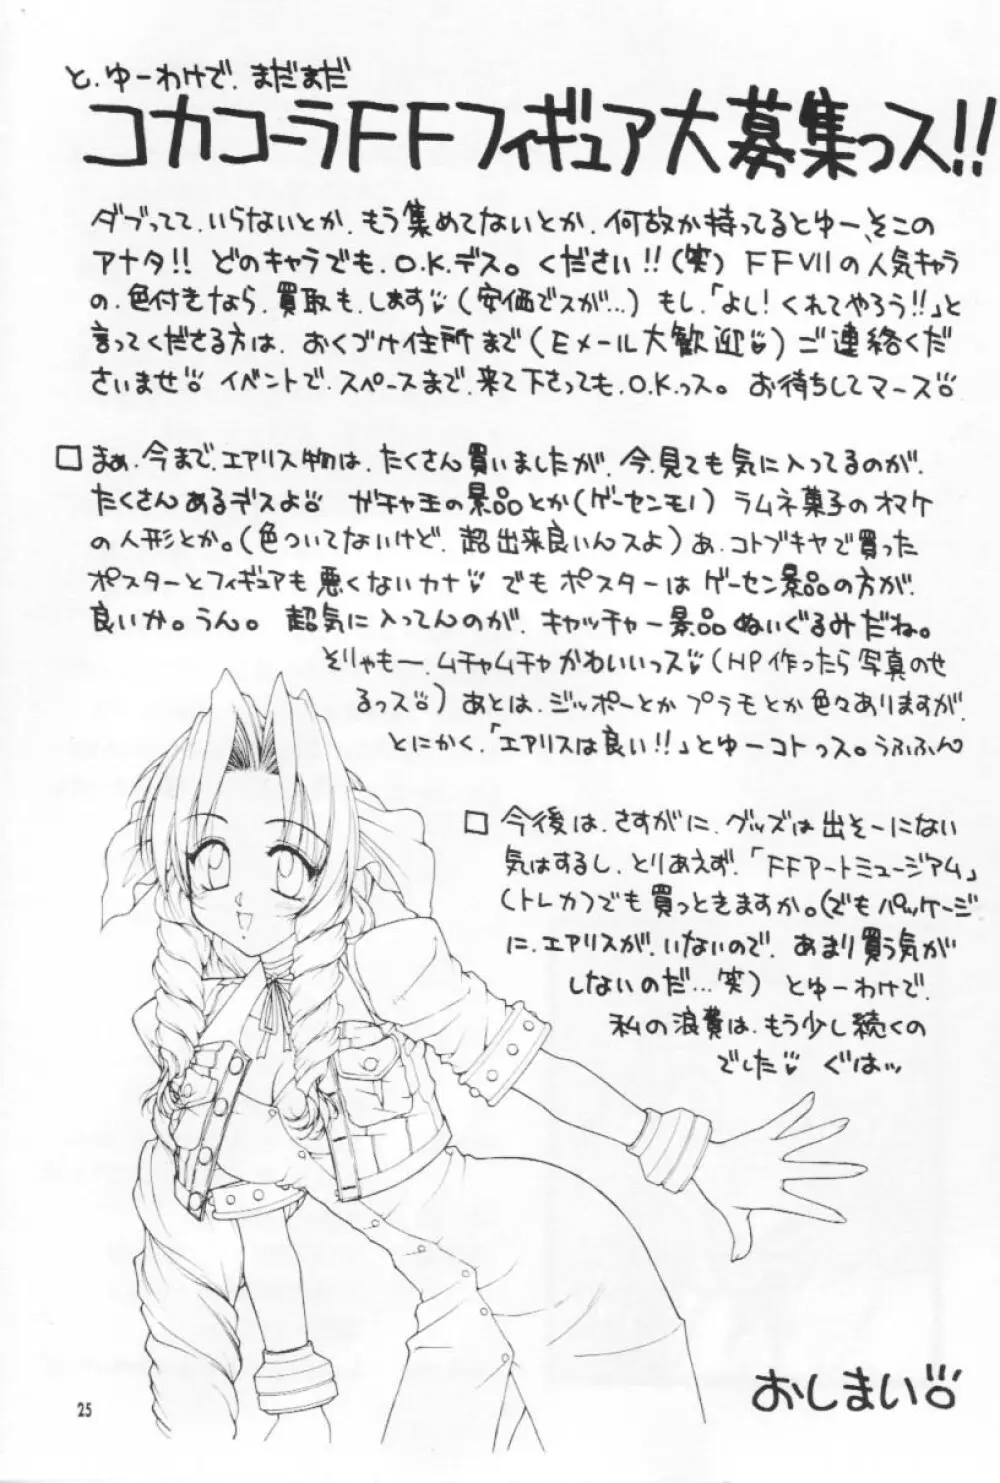 と、ゆーわけで、まだまだ
コカコーラFFフィギュア大募集っス!!
ダブってて、いらないとか、もう集めてないとか、何故か持ってるとゆー、そこの
アナタ!! どのキャラでも、O.K.デス。ください!!(笑) FFVIIの人気キャラ
の、色付きなら、買取も、します(安価でスが…)もし、「よし!くれてやろう!!」と
言ってくださる方は、おくづけ住所まで(Eメール大歓迎)ご連絡くだ
さいませ イベントで、スペースまで、来て下さっても、O.K.っス。お待ちしてマース
□まぁ、今まで、エアリス物は、たくさん買いましたが、今、見ても気に入ってるのが、
たくさんあるデスよ ガチャ玉の景品とか(ゲーセンモノ)ラムネ菓子のオマケ
の人形とか。(色ついてないけど、超出来良いんスよ)あ、コトブキヤで買った
ポスターとフィギュアも悪くないカナ でもポスターはゲーセン景品の方が、
良いか。うん。 超気に入ってんのが、キャッチャー景品ぬいぐるみだね。
そりゃもー、ムチャムチャかわいいっス(HP作ったら写真のせ
るっス)あとは、ジッポーとかプラモとか色々ありますが、
とにかく、「エアリスは良い!!」とゆーコトっス。うふふん
□今後は、さすがに、グッズは出そーにない
気はするし、とりあえず、「FFアートミュージアム」
(トレカ)でも買っときますか。(でもパッケージ
に、エアリスが、いないので、あまり買う気が
しないのだ…笑)とゆーわけで、
私の浪費は、もう少し続くの
でした ぐはッ
おしまい
25